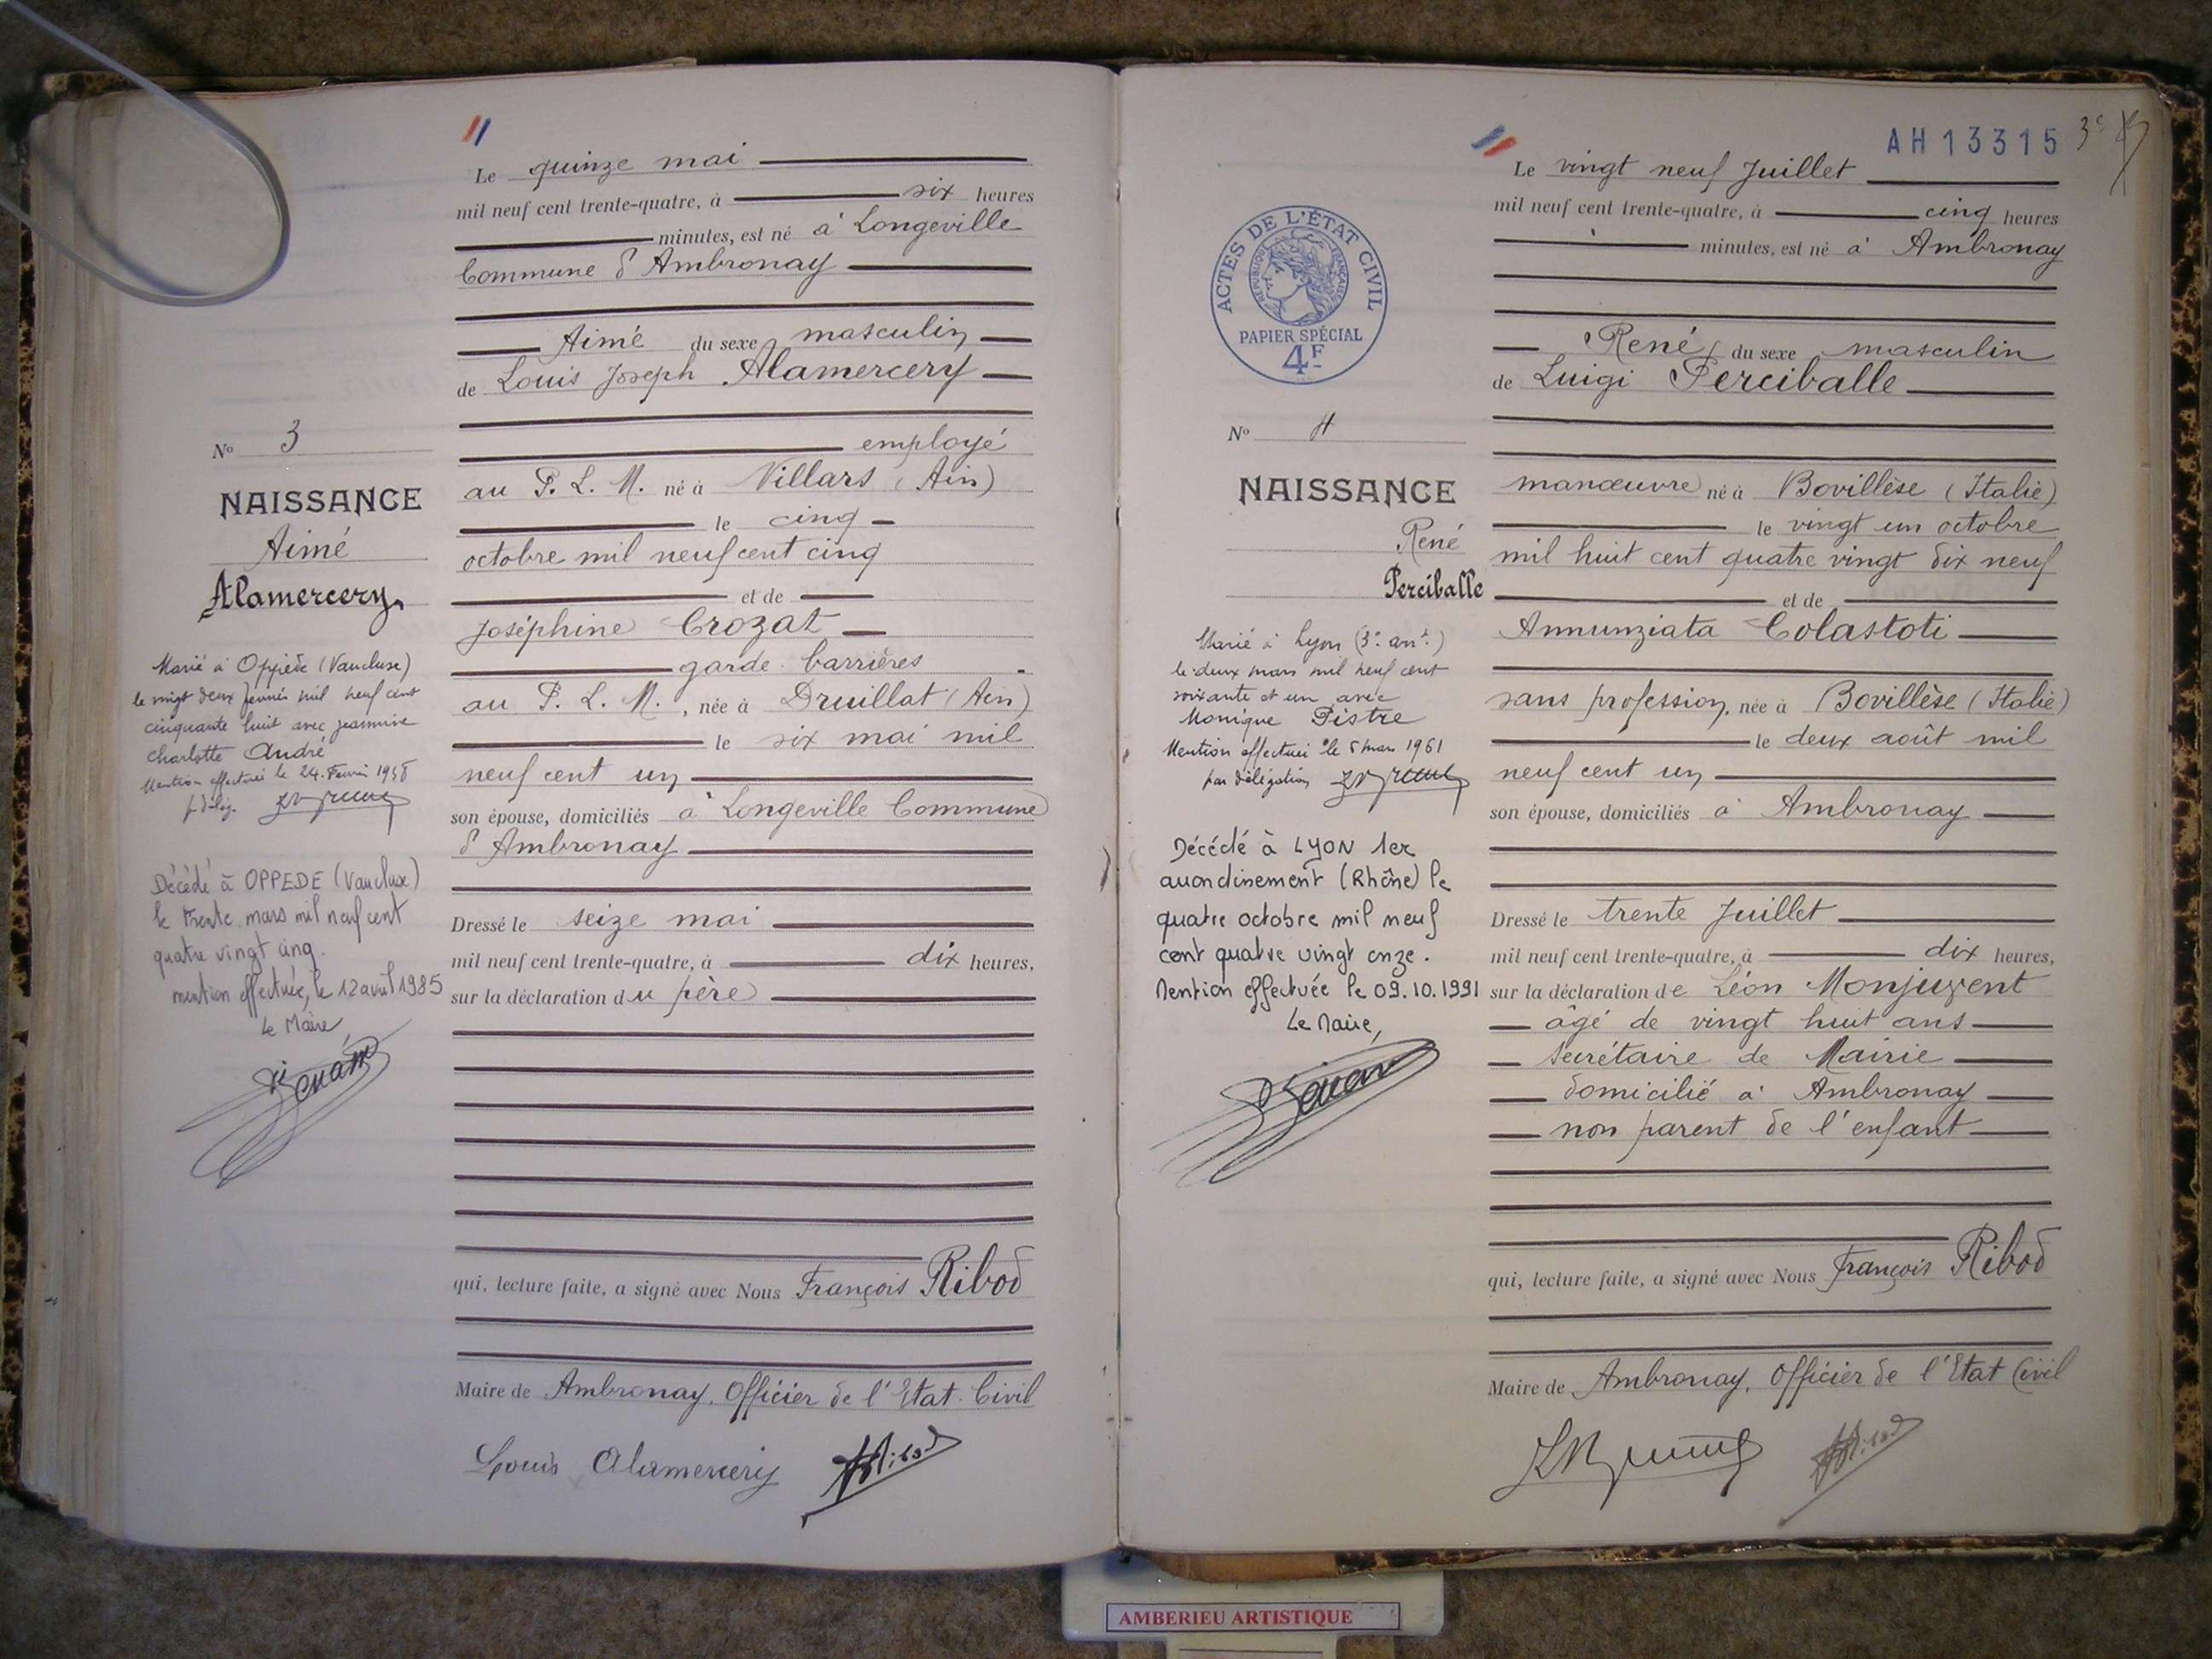 Le quinze mai
mil neuf cent trente-quatre, à six heures
minutes, est né à Longeville
Commune d'Ambronay
Aimé du sexe masculin
de Louis Joseph Alamercery
employé
au P. L. M. né à Villars (Ain)
le cinq
octobre mil neuf cent cinq
et de
Joséphine Crozat
garde-barrières
au P. L. M., née à Druillat (Ain)
le six mai mil
neuf cent un
son épouse, domiciliés à Longeville Commune
d'Ambronay
Dressé le seize mai
mil neuf cent trente-quatre, à dix heures,
sur la déclaration du père
qui, lecture faite, a signé avec Nous François Ribod
Maire de Ambronay, Officier de l'Etat-Civil
Louis Alamercery Ribod
No 3
NAISSANCE
Aimé
Alamercery
Marié à Oppède (Vaucluse)
le vingt deux février mil neuf cent
cinquante huit avec Jeannine
Charlotte André
Mention effectuée le 24 Février 1958
p. délég.
Décédé à OPPEDE (Vaucluse)
le trente mars mil neuf cent
quatre vingt cinq.
mention effectuée, le 12 avril 1985
Le Maire,
AH 13315
Le vingt neuf Juillet
mil neuf cent trente-quatre, à cinq heures
minutes, est né à Ambronay
René, du sexe masculin
de Luigi Perciballe
manœuvre né à Bovillèse (Italie)
le vingt un octobre
mil huit cent quatre vingt dix neuf
et de
Annunziata Colastoti
sans profession, née à Bovillèse (Italie)
le deux août mil
neuf cent un
son épouse, domiciliés à Ambronay
Dressé le trente Juillet
mil neuf cent trente-quatre, à dix heures,
sur la déclaration de Léon Monjuvent
âgé de vingt huit ans
secrétaire de Mairie
domicilié à Ambronay
non parent de l'enfant
qui, lecture faite, a signé avec Nous François Ribod
Maire de Ambronay, Officier de l'Etat Civil
Ribod
ACTES DE L'ÉTAT CIVIL
RÉPUBLIQUE FRANÇAISE
PAPIER SPÉCIAL
4F
No 4
NAISSANCE
René
Perciballe
Marié à Lyon (3e arrt.)
le deux mars mil neuf cent
soixante et un avec
Monique Pistre
Mention effectuée le 6 mars 1961
par délégation
Décédé à LYON 1er
arrondissement (Rhône) le
quatre octobre mil neuf
cent quatre vingt onze.
Mention effectuée le 09.10.1991
Le Maire,
AMBERIEU ARTISTIQUE